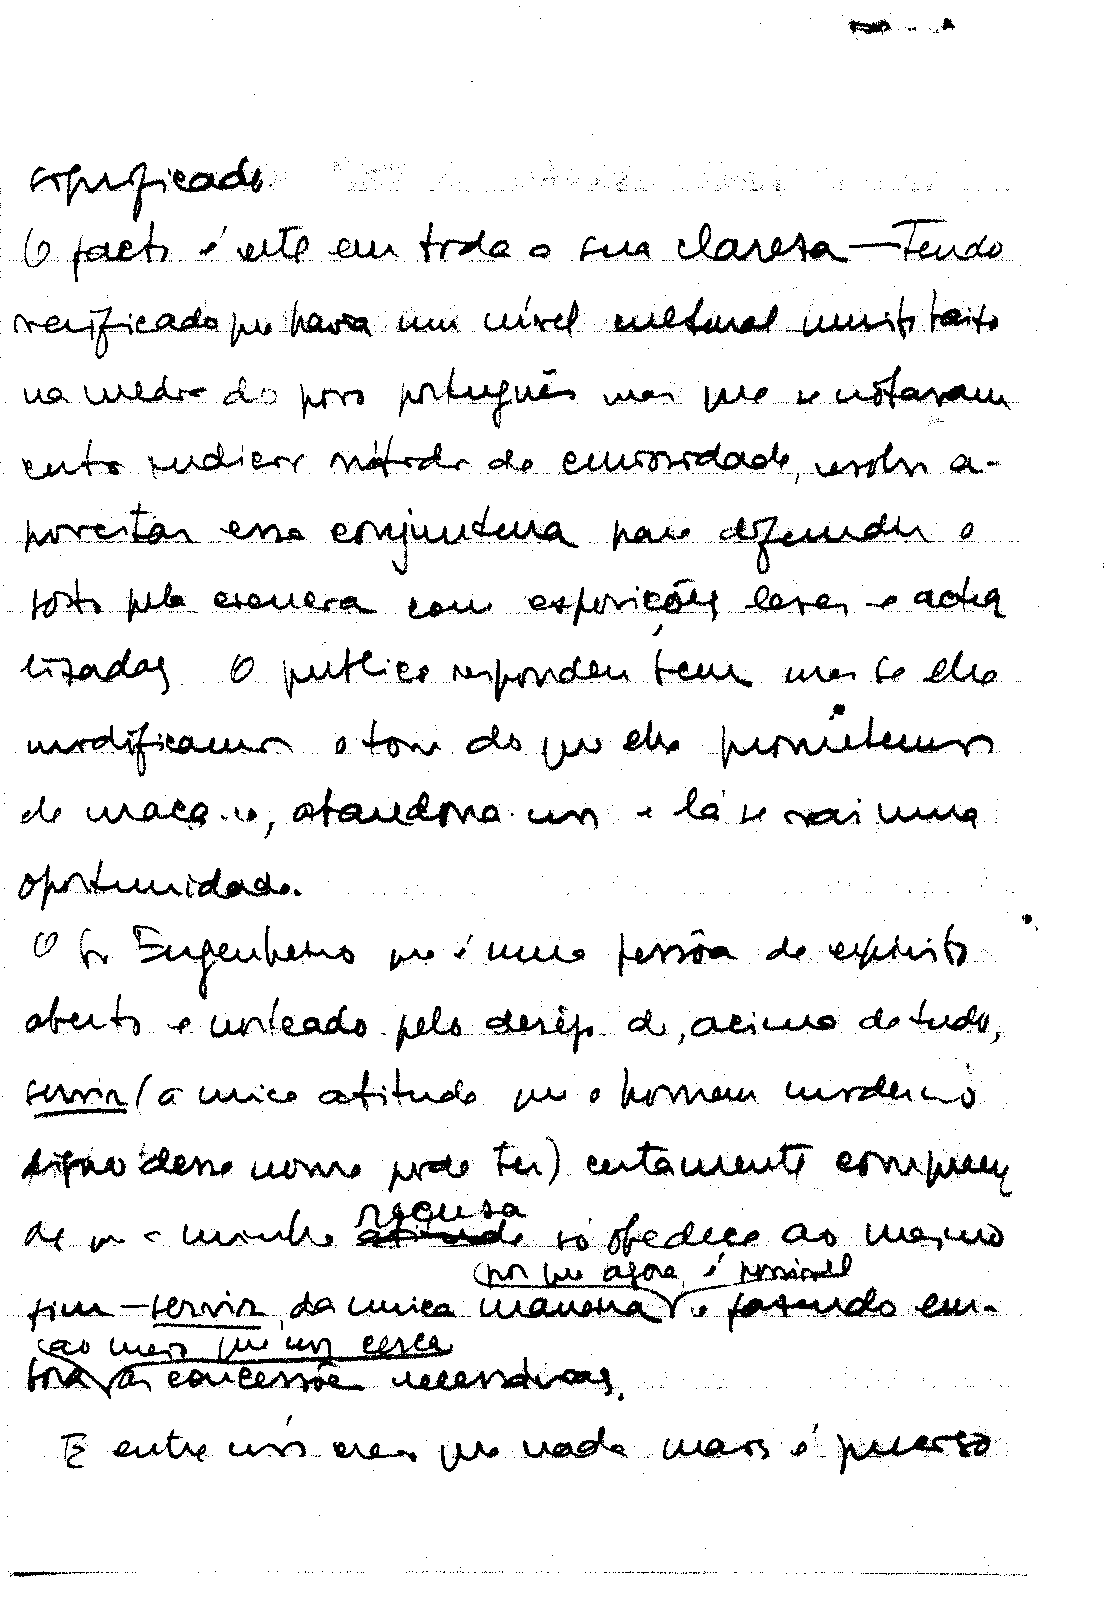 significado
O facto é este em toda a sua claresa — Tendo
verificado que havia um nível cultural muito baixo
na media do povo português mas que se notavam
certos indicios nítidos de curiosidade, resolvi a-
proveitar essa conjuntura para defender o
gosto pela                com exposições leves e actua
lizadas O publico respondeu bem mas se lhe
modificamos o tom do que lhe prometemos
de maça-lo, abandona-nos e lá se vai uma
oportunidade.
O Sr Engenheiro que é uma pessôa de espirito
aberto e norteado pelo desejo de, acima de tudo,
servir (a unica atitude que o homem moderno
digno desse nome pode ter) certamente compreen
de que a minha recusa só obedece ao mesmo
por que agora é possivel
fim — servir da unica maneira e fazendo em-
ao meio que nos cerca
bora as concessões necessárias.
E entre nós creia que nada mais é preciso